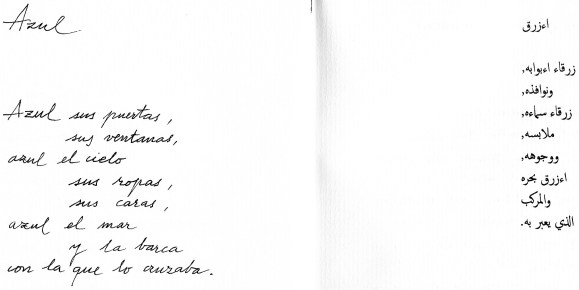 Azul
Azul sus puertas,
sus ventanas,
azul el cielo
sus ropas,
sus caras,
azul el mar
y la barca
con la que lo cruzaba.
اءزرق
زرقاء اءبوابه,
ونوافذه,
زرقاء سماءه,
ملابسه,
ووجوهه,
اءزرق بحره
والمركب
الذي يعبر به.